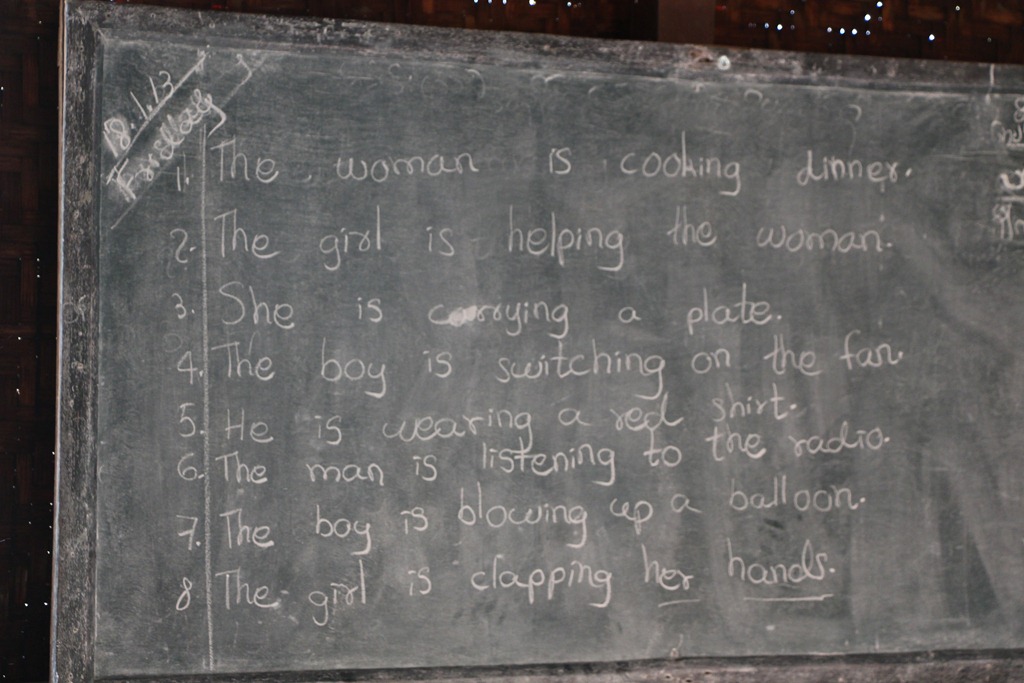 18.1.13
1. The woman is cooking dinner.
2. The girl is helping the woman.
3. She is carrying a plate.
4. The boy is switching on the fan.
5. He is wearing a red shirt.
6. The man is listening to the radio.
7. The boy is blowing up a balloon.
8 The girl is clapping her hands.